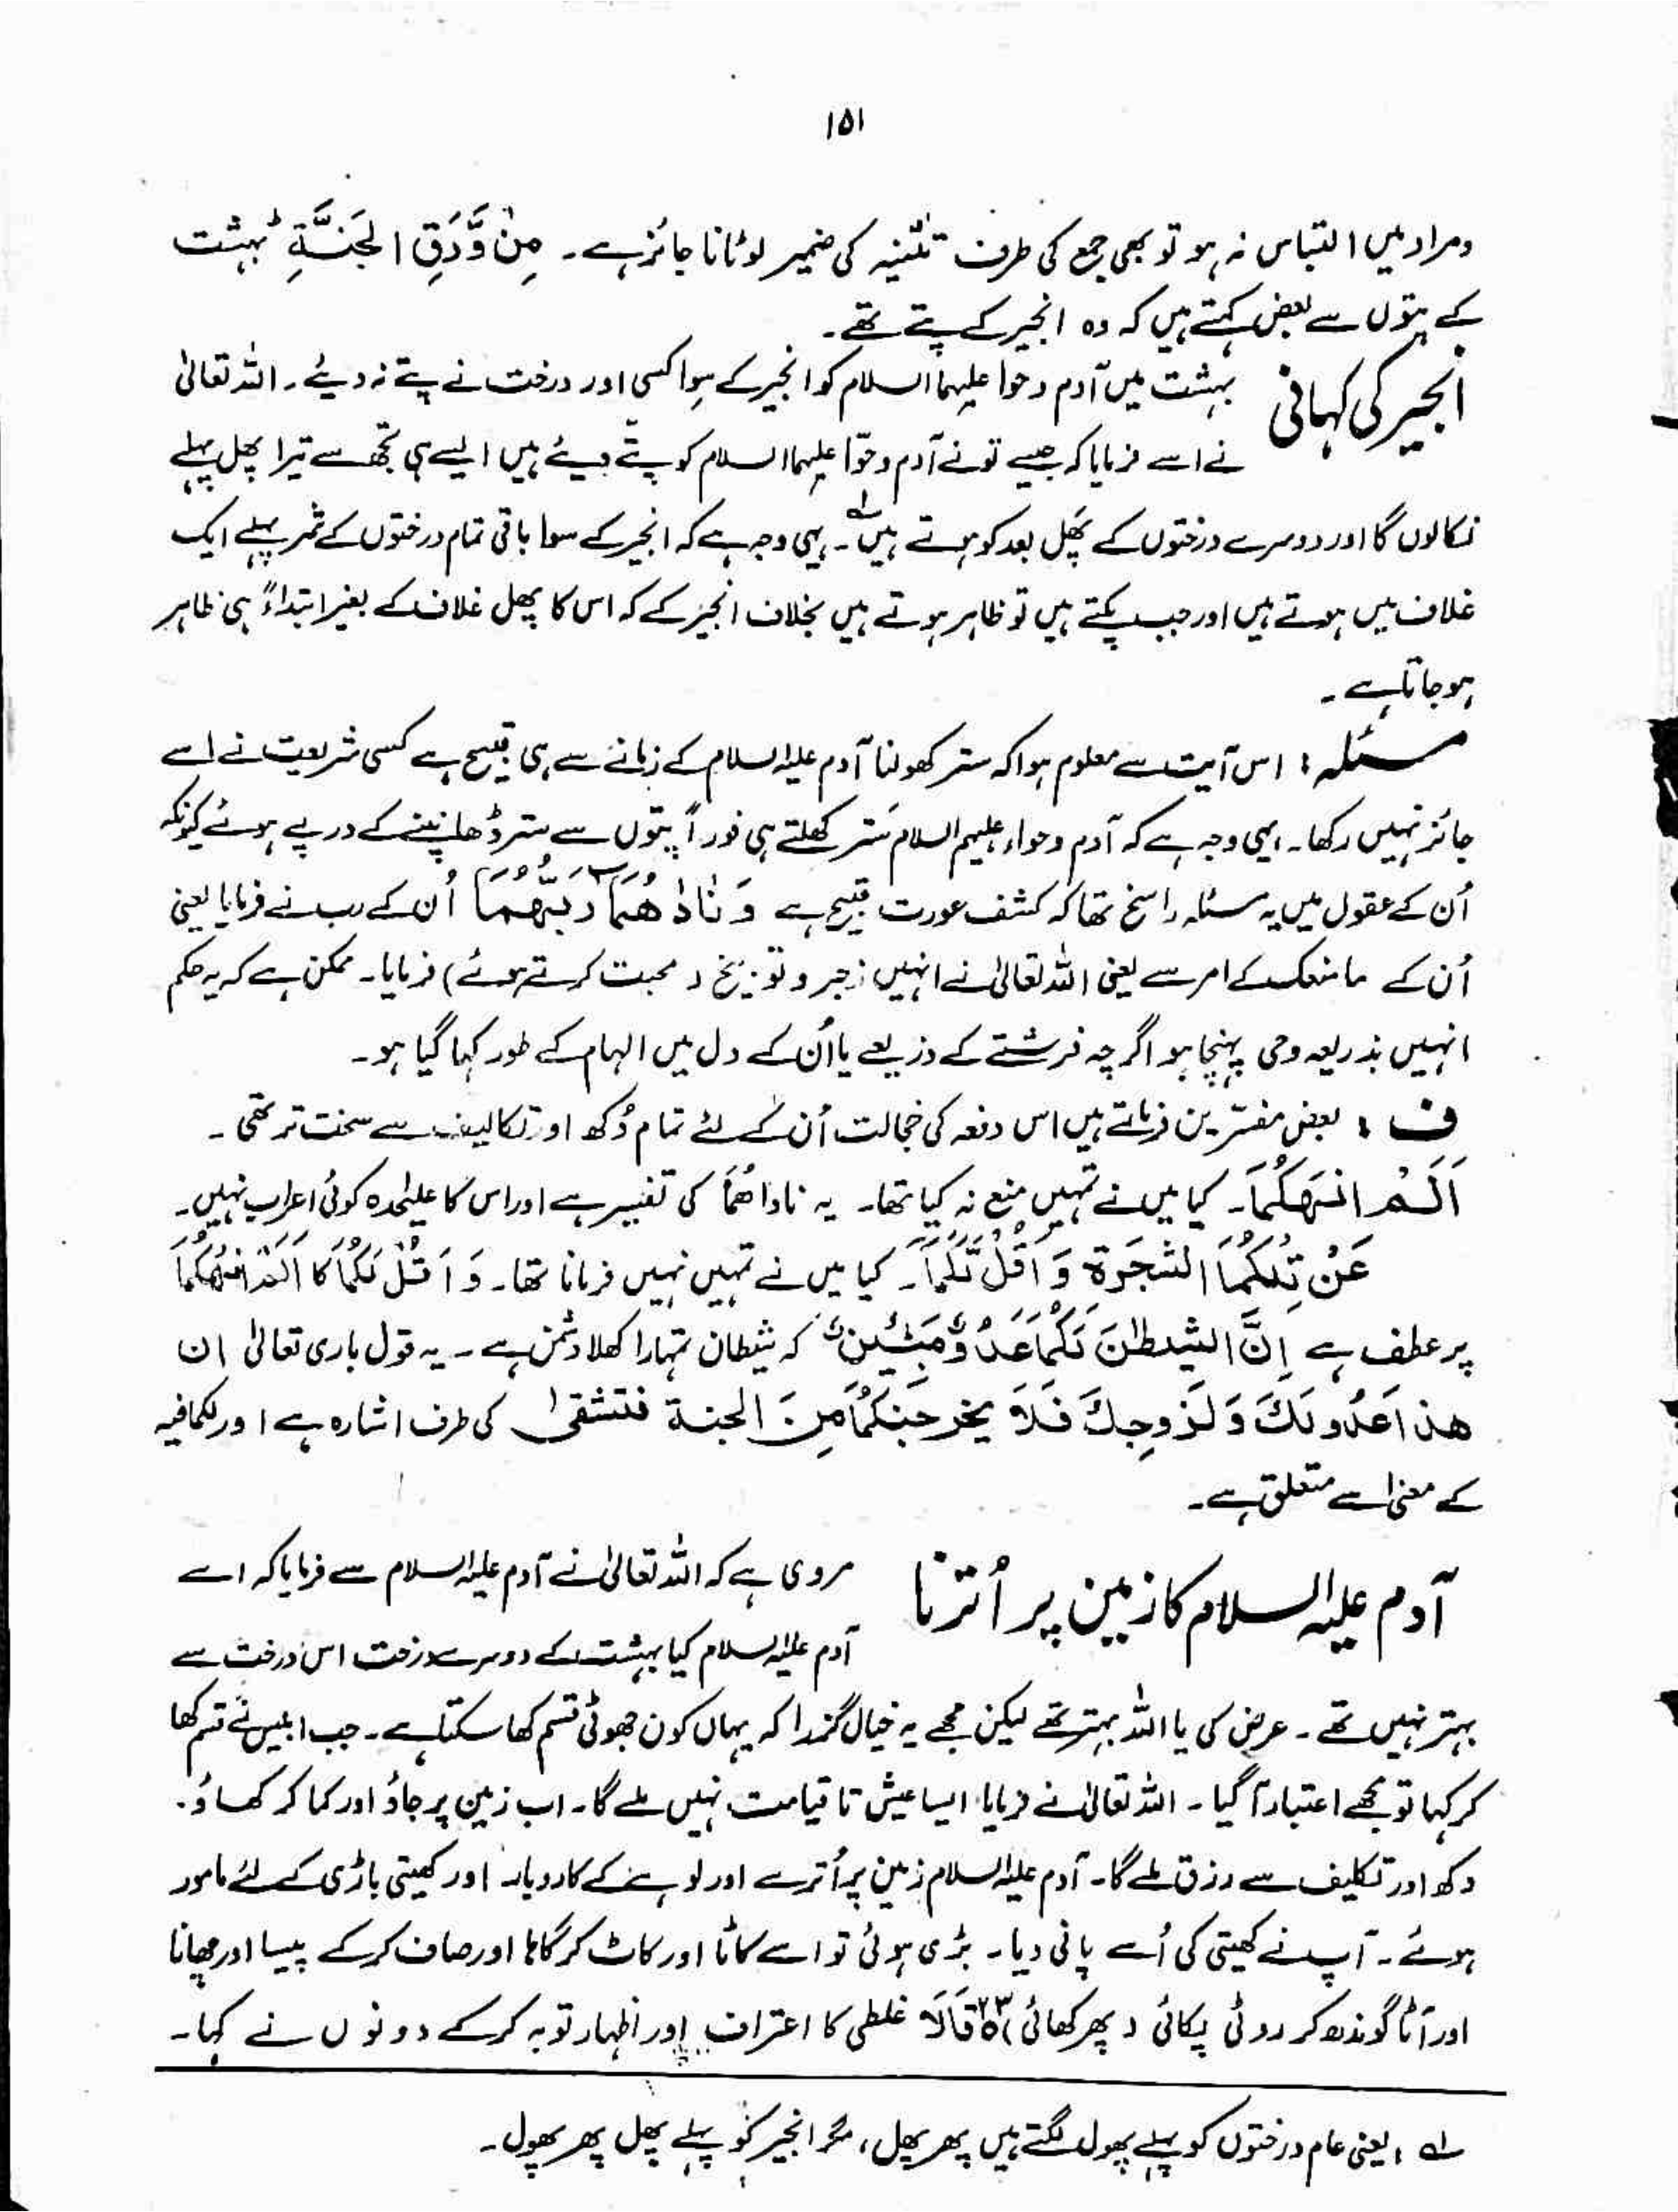 ۱۵۱
ومراد میں التباس نہ ہو تو بھی جمع کی طرف تثنیہ کی ضمیر لوٹانا جائز ہے۔ مِنْ وَّرَقِ الْجَنَّةِ ؕ بہشت
کے پتوں سے بعض کہتے ہیں کہ وہ انجیر کے پتے تھے۔
انجیر کی کہانی
بہشت میں آدم وحوا علیہما السلام کو انجیر کے سوا کسی اور درخت نے پتے نہ دیئے۔ اللہ تعالیٰ
نے اسے فرمایا کہ جیسے تو نے آدم وحوّا علیہما السلام کو پتے دیئے ہیں ایسے ہی تجھ سے تیرا پھل پہلے
نکالوں گا اور دوسرے درختوں کے پھَل بعد کو ہوتے ہیں لہ۔ یہی وجہ ہے کہ انجیر کے سوا باقی تمام درختوں کے ثمر پہلے ایک
غلاف میں ہوتے ہیں اور جب پکتے ہیں تو ظاہر ہوتے ہیں بخلاف انجیر کے کہ اس کا پھل غلاف کے بغیر ابتداءً ہی ظاہر
ہوجاتا ہے۔
مسئلہ : اس آیت سے معلوم ہوا کہ ستر کھولنا آدم علیہ السلام کے زمانے سے ہی قبیح ہے کسی شریعت نے اسے
جائز نہیں رکھا۔ یہی وجہ ہے کہ آدم وحواء علیہم السلام سَتر کھلتے ہی فوراً پتوں سے ستر ڈھانپنے کے درپے ہوئے کیونکہ
اُن کے عقول میں یہ مسئلہ راسخ تھا کہ کشف عورت قبیح ہے وَنَادٰىهُمَا رَبُّهُمَآ اُن کے رب نے فرمایا یعنی
اُن کے مانعک کے امر سے یعنی اللہ تعالیٰ نے انہیں زجر و توبیخ (محبت کرتے ہوئے) فرمایا۔ ممکن ہے کہ یہ حکم
انہیں بذریعہ وحی پہنچا ہو اگرچہ فرشتے کے ذریعے یا اُن کے دل میں الہام کے طور کہا گیا ہو۔
ف : بعض مفسّرین فرماتے ہیں اس دفعہ کی خجالت اُن کے لئے تمام دُکھ اور تکالیف سے سخت تر تھی۔
اَلَمْ انهَكُمَا۔ کیا میں نے تمہیں منع نہ کیا تھا۔ یہ ناداهُمَا کی تفسیر ہے اور اس کا علیٰحدہ کوئی اعراب نہیں۔
عَنْ تِلْكُمَا الشَّجَرَة وَاَقُلْ لَّكُمَآ۔ کیا میں نے تمہیں نہیں فرمانا تھا۔ وَاَقُلْ لَكُمَا کا اَلَمْ اَنْهَكُمَا
پر عطف ہے اِنَّ الشیطٰنَ لَكُمَا عَدُوٌّ مُّبِيْنٌ کہ شیطان تمہارا کھلا دشمن ہے۔ یہ قول باری تعالیٰ ان
هذا عَدُولَكَ وَلَزوجِكَ فَلَا يخرجَنكُمَا مِنَ الجنة فتشقىٰ کی طرف اشارہ ہے اور لکمافیہ
کے معنیٰ سے متعلق ہے۔
آدم علیہ السلام کا زمین پر اُترنا
مروی ہے کہ اللہ تعالیٰ نے آدم علیہ السلام سے فرمایا کہ اے
آدم علیہ السلام کیا بہشت کے دوسرے درخت اس درخت سے
بہتر نہیں تھے۔ عرض کی یا اللہ بہتر تھے لیکن مجھے یہ خیال گذرا کہ یہاں کون جھوٹی قسم کھا سکتا ہے۔ جب ابلیس نے قسم کھا
کر کہا تو مجھے اعتبار آگیا۔ اللہ تعالیٰ نے فرمایا ایسا عیش تا قیامت نہیں ملے گا۔ اب زمین پر جاؤ اور کما کر کھاؤ۔
دکھ اور تکلیف سے رزق ملے گا۔ آدم علیہ السلام زمین پر اُترے اور لوہے کے کاروبار اور کھیتی باڑی کے لئے مامور
ہوئے۔ آپ نے کھیتی کی اُسے پانی دیا۔ بڑی ہوئی تو اسے کاٹا اور کاٹ کر گاہا اور صاف کر کے پیسا اور چھانا
اور آٹا گوندھ کر روٹی پکائی (پھر کھائی) ۲۳ قَالَا غلطی کا اعتراف اور اظہار توبہ کر کے دونوں نے کہا۔
لہ ، یعنی عام درختوں کو پہلے پھول لگتے ہیں پھر پھل، مگر انجیر کو پہلے پھل پھر پھول۔